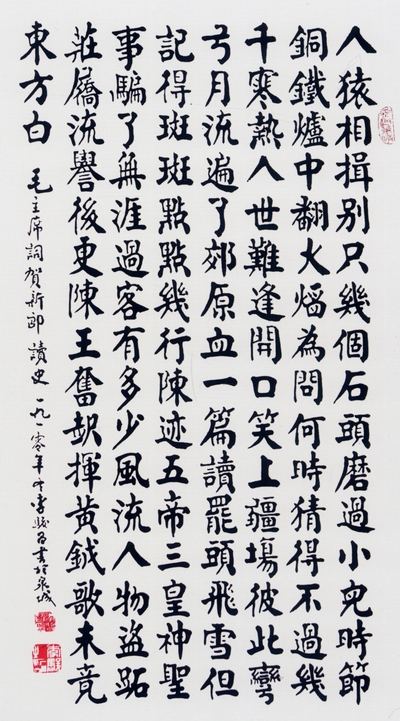 人猿相揖別只幾個石頭磨過小兒時節
銅鐵爐中翻火熖為問何時猜得不過幾
千寒熱人世難逢開口笑上疆場彼此彎
弓月流遍了郊原血一篇讀罷頭飛雪但
記得斑斑點點幾行陳迹五帝三皇神聖
事騙了無涯過客有多少風流人物盜跖
莊屩流譽後更陳王奮起揮黃鉞歌未竟
東方白
毛主席詞賀新郎 讀史 一九八零年 書於泉城